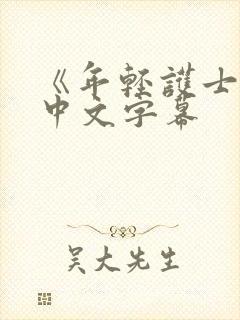 《年輕護士
中文字幕
吴大先生